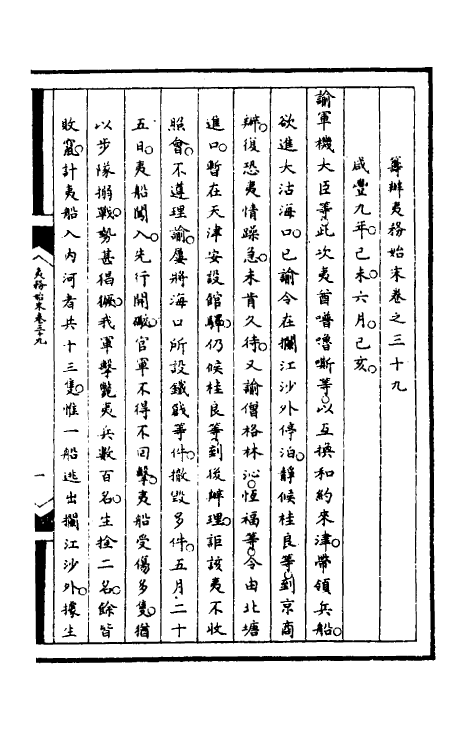 籌辦夷務始末卷之三十九
咸豐九年己未六月己亥。
諭軍機大臣等。此次夷酋嚕嘶等。以互換和約來津。帶領兵船。
欲進大沽海口。已諭令在攔江沙外停泊。靜候桂良等到京商
辦。後恐夷情躁急。未肯久待。又諭僧格林沁。恆福等。令由北塘
進口。暫在天津安設館驛。仍候桂良等到後辦理。詎該夷不收
照會。不遵理諭。屢將海口所設鐵戧等件。撤毀多件。五月二十
五日。夷船闖入。先行開礮。官軍不得不回擊。夷船受傷多隻。猶
以步隊搦戰。勢甚猖獗。我軍擊斃夷兵數百名。生拴二名。餘皆
敗竄。計夷船入內河者共十三隻。惟一船逃出攔江沙外。據生
夷務始末卷三十九
一